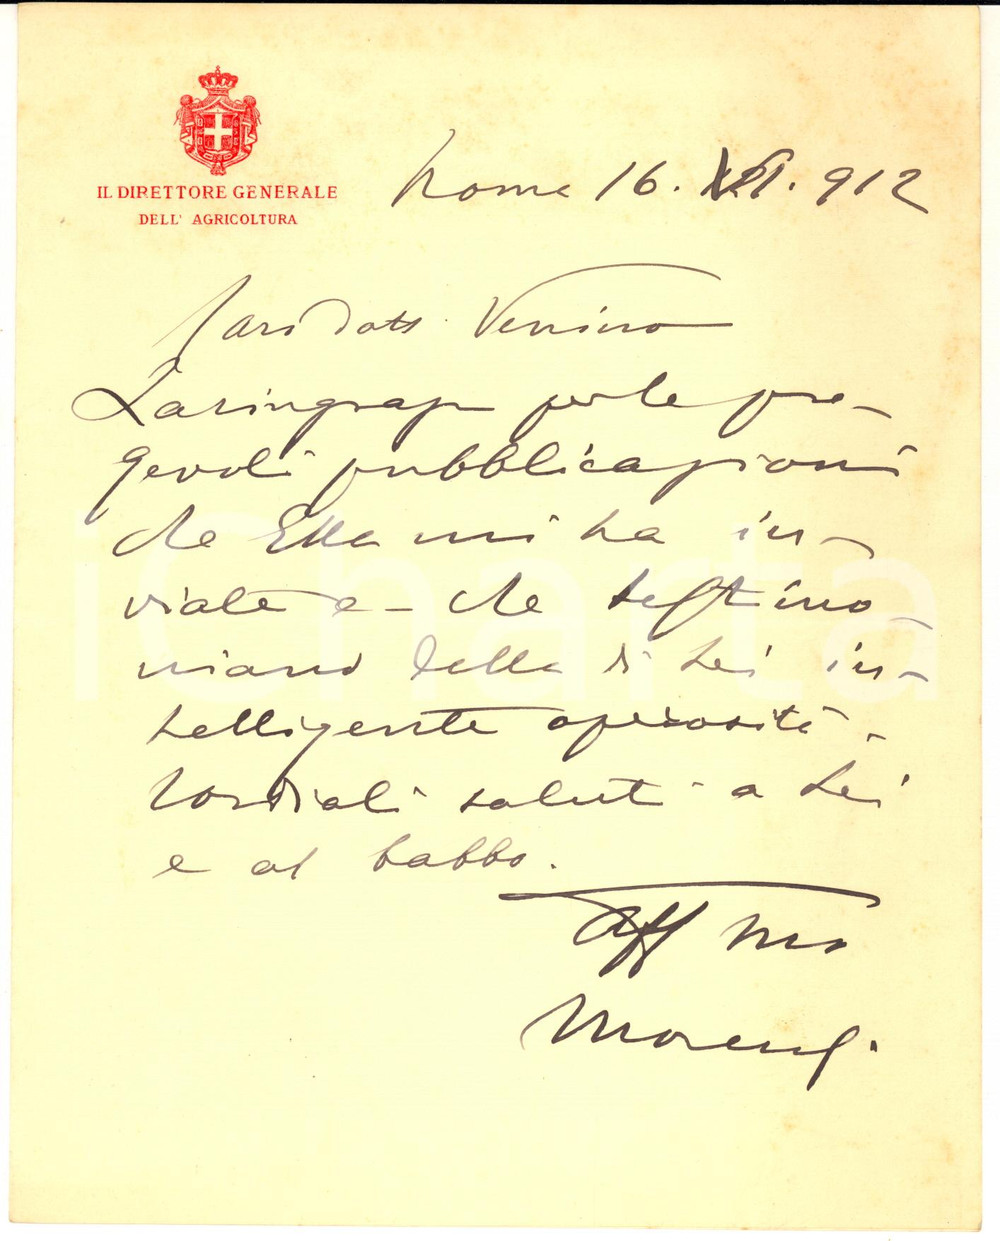 IL DIRETTORE GENERALE
DELL' AGRICOLTURA
Roma 16. . 912
Caro Dott. Vennino
La ringrazio per le pre-
gevoli pubblicazioni
che Ella mi ha in-
viate e che testimo
niano della di Lei in-
telligente operosità.
Cordiali saluti a Lei
e al babbo.
Aff mo
Moreschi
iCharta